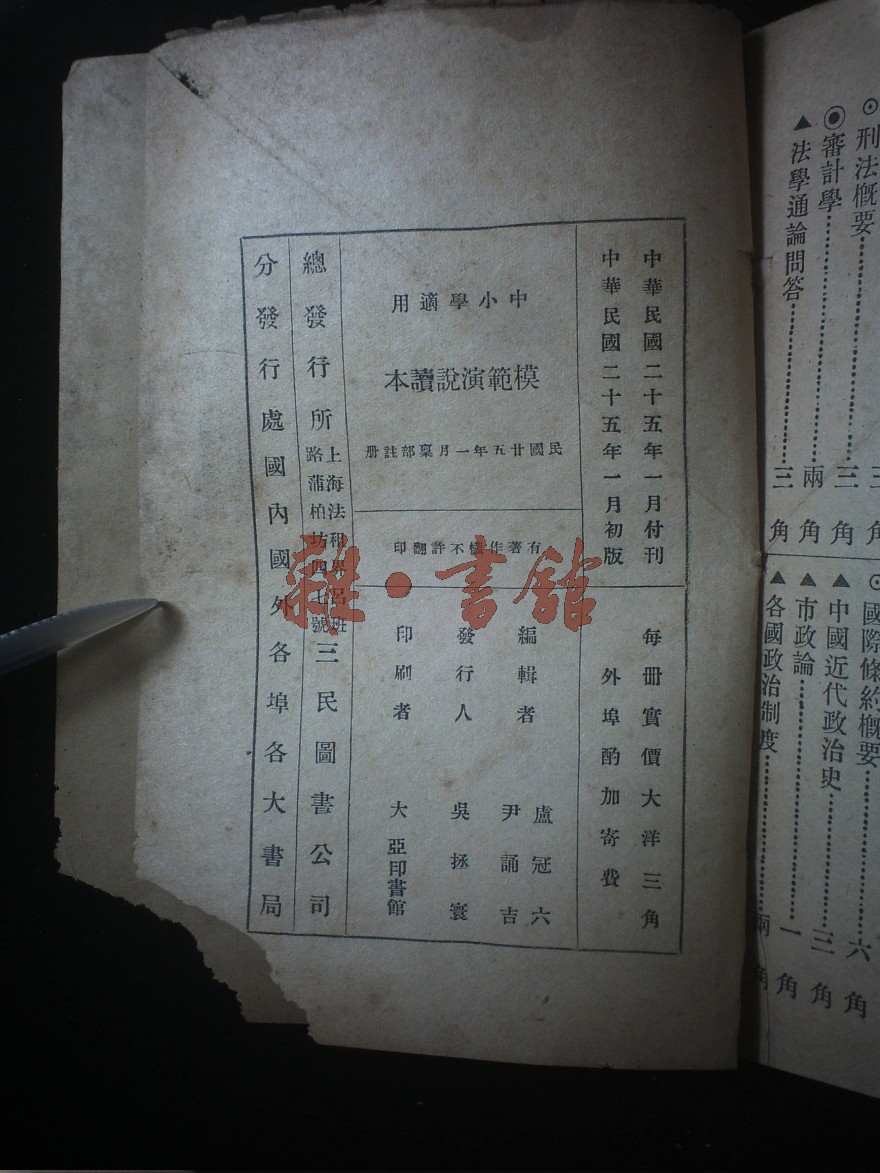 ⊙刑法概要⋯⋯三角
◉審計學⋯⋯三角
▲法學通論問答⋯⋯三角
國際條約概要⋯⋯六角
▲中國近代政治史⋯⋯三角
▲市政論⋯⋯一角
▲各國政治制度⋯⋯兩角
中華民國二十五年一月付刊
中華民國二十五年一月初版
每冊實價大洋三角
外埠酌加寄費
中小學適用
模範演說讀本
民國廿五年一月稟部註册
有著作權不許翻印
編輯者 盧冠六 尹誦吉
發行人 吳拯寰
印刷者 大亞印書館
總發行所 上海法租界呂班路蒲柏坊四七號 三民圖書公司
分發行處 國內國外各埠各大書局
雜·書館